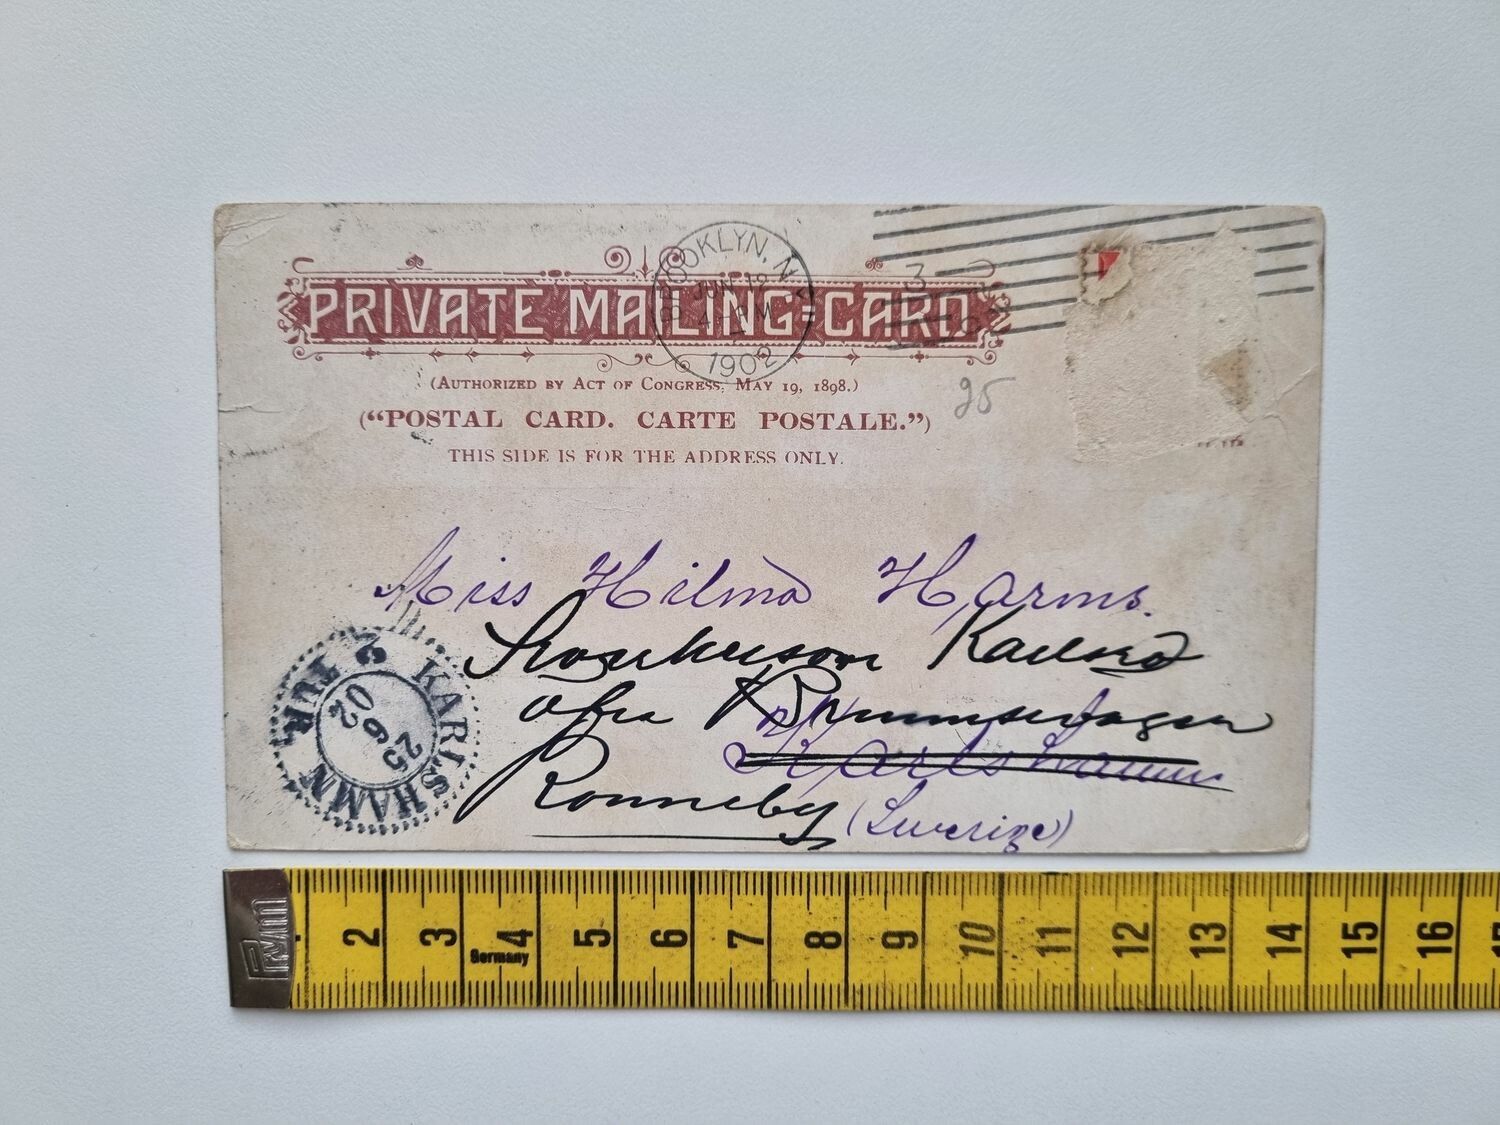 BROOKLYN, N.Y.
JUN 12
4 - PM
1902
3
PRIVATE MAILING-CARD
(AUTHORIZED BY ACT OF CONGRESS, MAY 19, 1898.)
("POSTAL CARD. CARTE POSTALE.")
THIS SIDE IS FOR THE ADDRESS ONLY.
25
Miss Hilma Harms.
Karlshamn
Ronneby (Sverige)
KARLSHAMN
25
6
02
2 TUR
prym
2 3 4 5 6 7 8 9 10 11 12 13 14 15 16
Germany